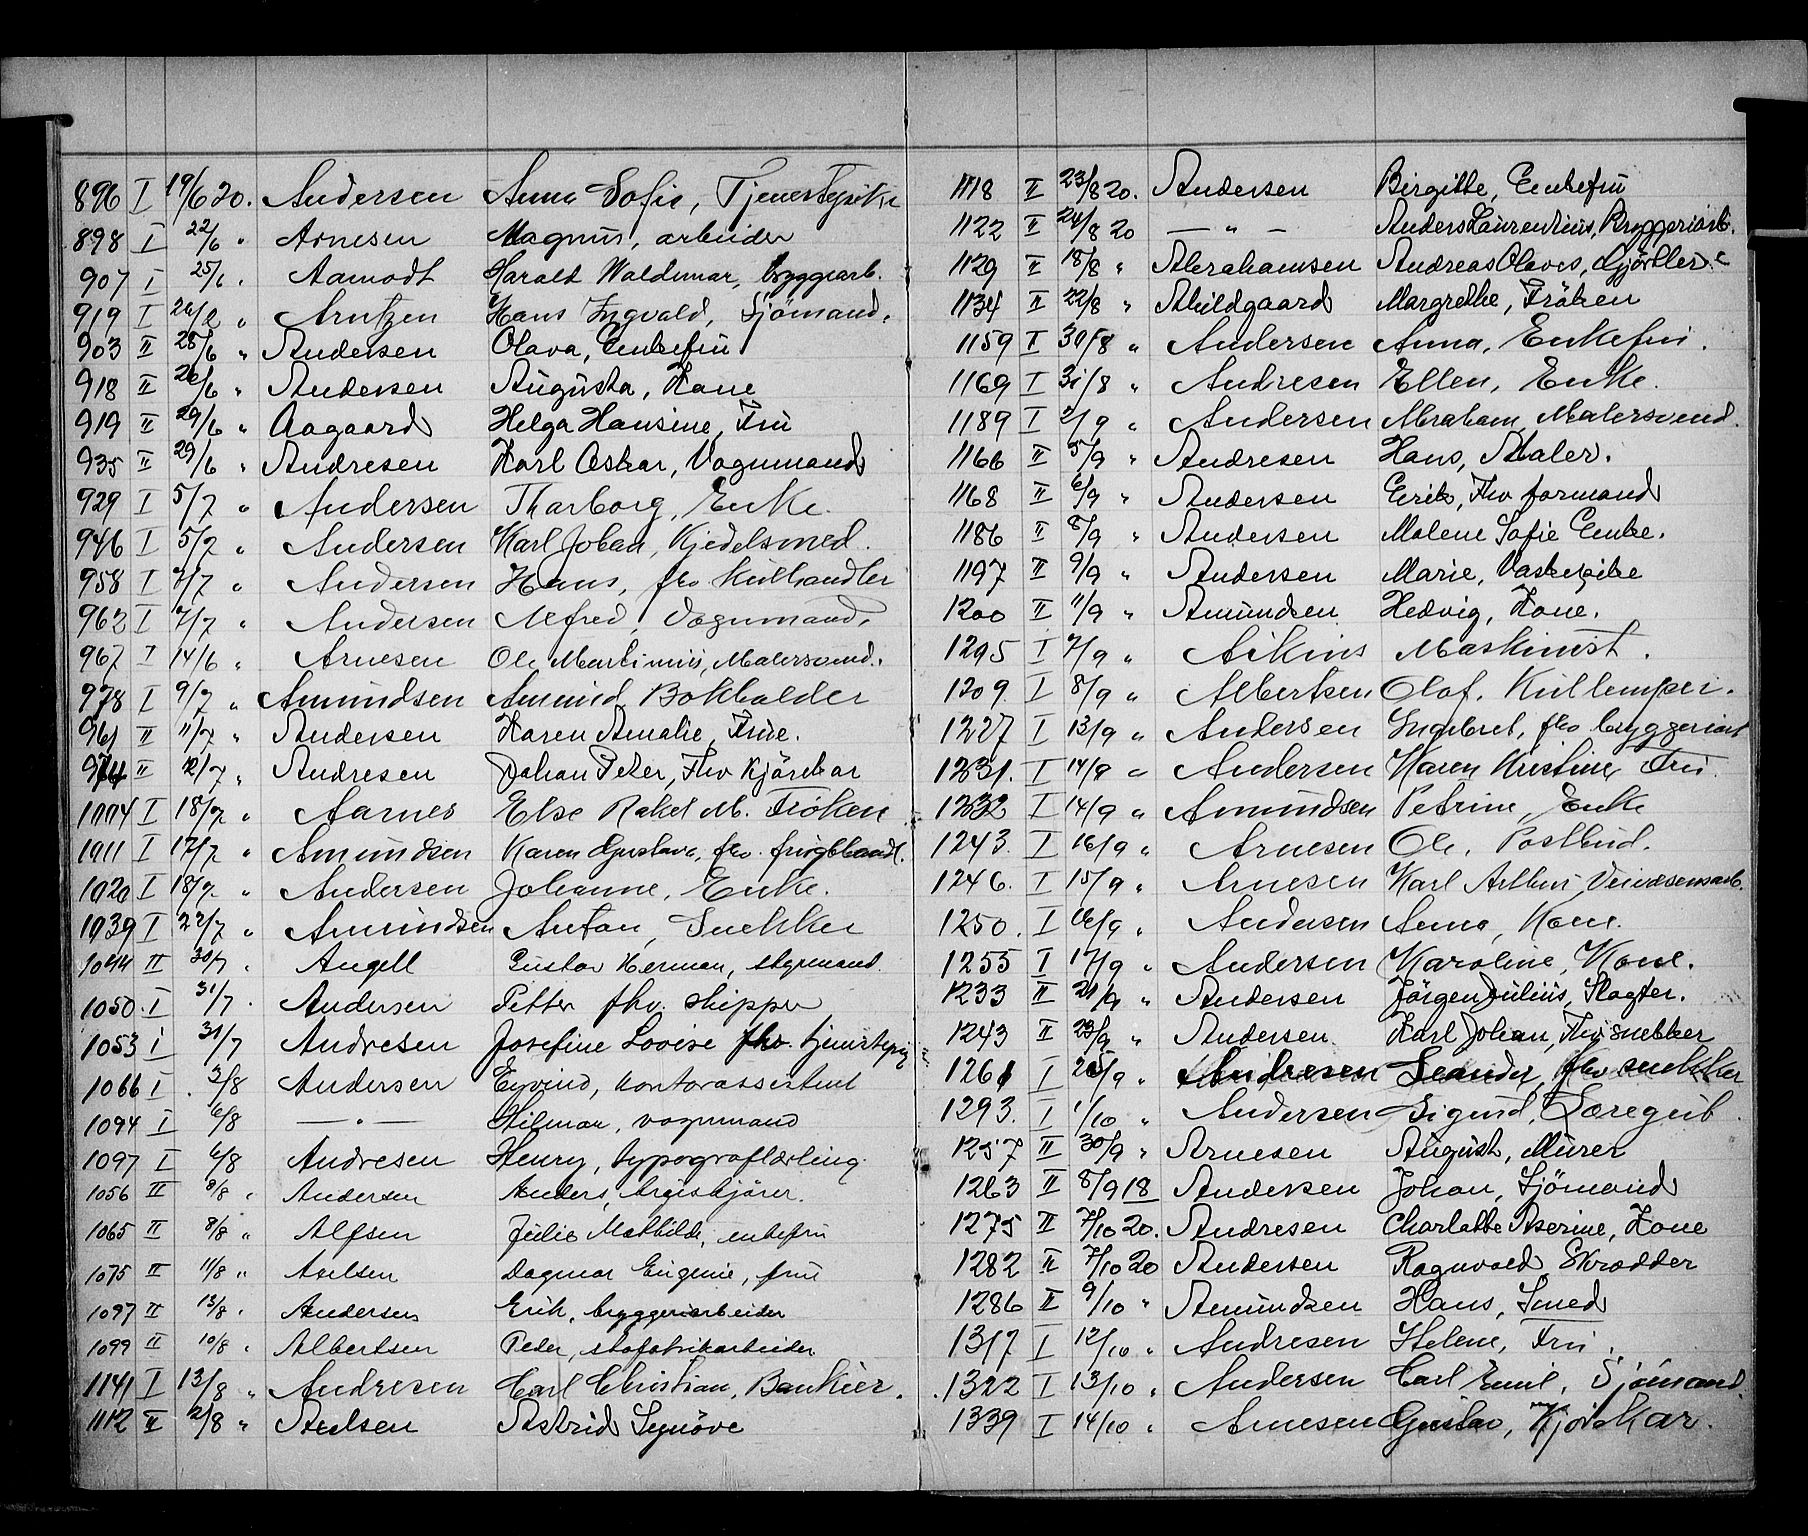 896 I 19/6 20. Andersen Anna Sofie, Tjenestepike
898 I 22/6 " Arnesen Magnus, arbeider
907 I 25/6 " Aamodt Harald Waldemar, bryggearb.
919 I " Arntzen Hans Ingvald, Sjømand.
903 II 28/6 " Andersen Olava, Enkefru
918 II 26/6 " Andersen Augusta, Kone
919 II 29/6 " Aagaard Helga Hansine, Fru
935 II 29/6 " Andresen Karl Oskar, Vognmand
929 I 5/7 " Andersen Tharborg, Enke.
946 I 5/7 " Andersen Karl Johan, Kjedelsmed.
958 I 7/7 " Andersen Hans, fhv Kulhandler
962 I 7/7 " Andersen Alfred, Vognmand,
967 I 14/6 " Arnesen Ole Martinius, Malersvend.
978 I 9/7 " Amundsen Amund Bokholder
961 II 11/7 " Andersen Karen Amalie, Frue.
974 II 12/7 " Andresen Johan Peter, Fhv Kjörekar
1004 I 18/7 " Aarnes Else Rakel M. Frøken
1011 I 17/7 " Amundsen Karen Gustava, fhv.
1020 I 18/7. " Andersen Johanne, Enke.
1039 I 22/7 " Amundsen Anton, Snekker
1044 II 30/7 " Angell Gustav Herman, styrmand.
1050. I 31/7 " Andersen Petter fhv. skipper
1053 I 31/7 Andresen Josefine Lovise fhv. tjenestepig
1066 I . 3/8 Andersen Eyvind, kontorassistent
1094 I 6/8 — " — Hilmar, vognmand
1097 I 6/8 Andresen Henry, typograflærling.
1056 II 8/8 " Andersen Anders,
1065 II 8/8 " Alfsen Julie Mathilde, enkefru
1075 II 11/8 " Axelsen Dagmar Eugenie, frue
1097 II 13/8 " Andersen Erik, bryggeriarbeider
1099 II 10/8 " Albertsen Peder,
1141 I 13/8 " Andresen Carl Christian, Bankier.
1112 II 2/8 " Axelsen Astrid Synöve
1118 II 23/8 20. Andersen Birgitte, Enkefru
1122 II 24/8 20 — " — Anders Laurentius, Bryggeriarb.
1129 II 18/8 " Abrahamsen Andreas Olaves, Gjörtler.
1134 II 22/8 " Abildgaard Margrethe, Fröken
1159 I 30/8 " Andersen Anna, Enkefru.
1169 I 31/8 " Andresen Ellen, Enke.
1189 I 2/9 " Andersen Abraham, Malersvend.
1166 II 5/9 " Andresen Hans, Maler.
1168 II 6/9 " Andersen Eerik, Fhv formand
1186 II 8/9 " Andersen Malene Sofie Enke.
1197 II 9/9 " Andersen Marie, Vaskepike
1200 II 11/9 " Amundsen Hedvig, Kone.
1295 I 7/9 " Aikins Maskinist.
1209. I 8/9 " Albertsen Olaf. Kullemper.
1227 I 13/9 " Andersen Ingebret, fhv bryggeriarb
1231. I 14/9 " Andersen Karen Kristine, Fru.
1232 I 14/9 " Amundsen Petrine, Enke
1243. I 16/9 " Arnesen Ole, Postbud.
1246. I 15/9 " Arnesen Karl Arthur, Veivæsensarb.
1250. I 16/9 " Andersen Anna, Kone.
1255 I 17/9 " Andersen Karoline, Kone.
1233 II 21/9 " Andersen Jörgen Julius, Slagter.
1243 II 23/9 " Andersen. Karl Johan, Fhv snekker
1261 I 25/9 " Andresen Leander, fhv snekker
1293. I 1/10 " Andersen Sigurd, Læregut.
1257 II 30/9 " Arnesen August, Murer
1263 II 8/9 18 Andersen Johan, Sjömand
1275 II 7/10 20. Andresen Charlotte Aserine, Kone
1282 II 7/10 20 Andersen Ragnvald Skrædder
1286 II 9/10 " Amundsen Hans, Smed
1317 I 12/10 " Andresen Helene, Fru.
1322 I 13/10 " Andersen Carl Emil, Sjømand.
1339 I 14/10 " Arnesen Gustav, Kjørekar.